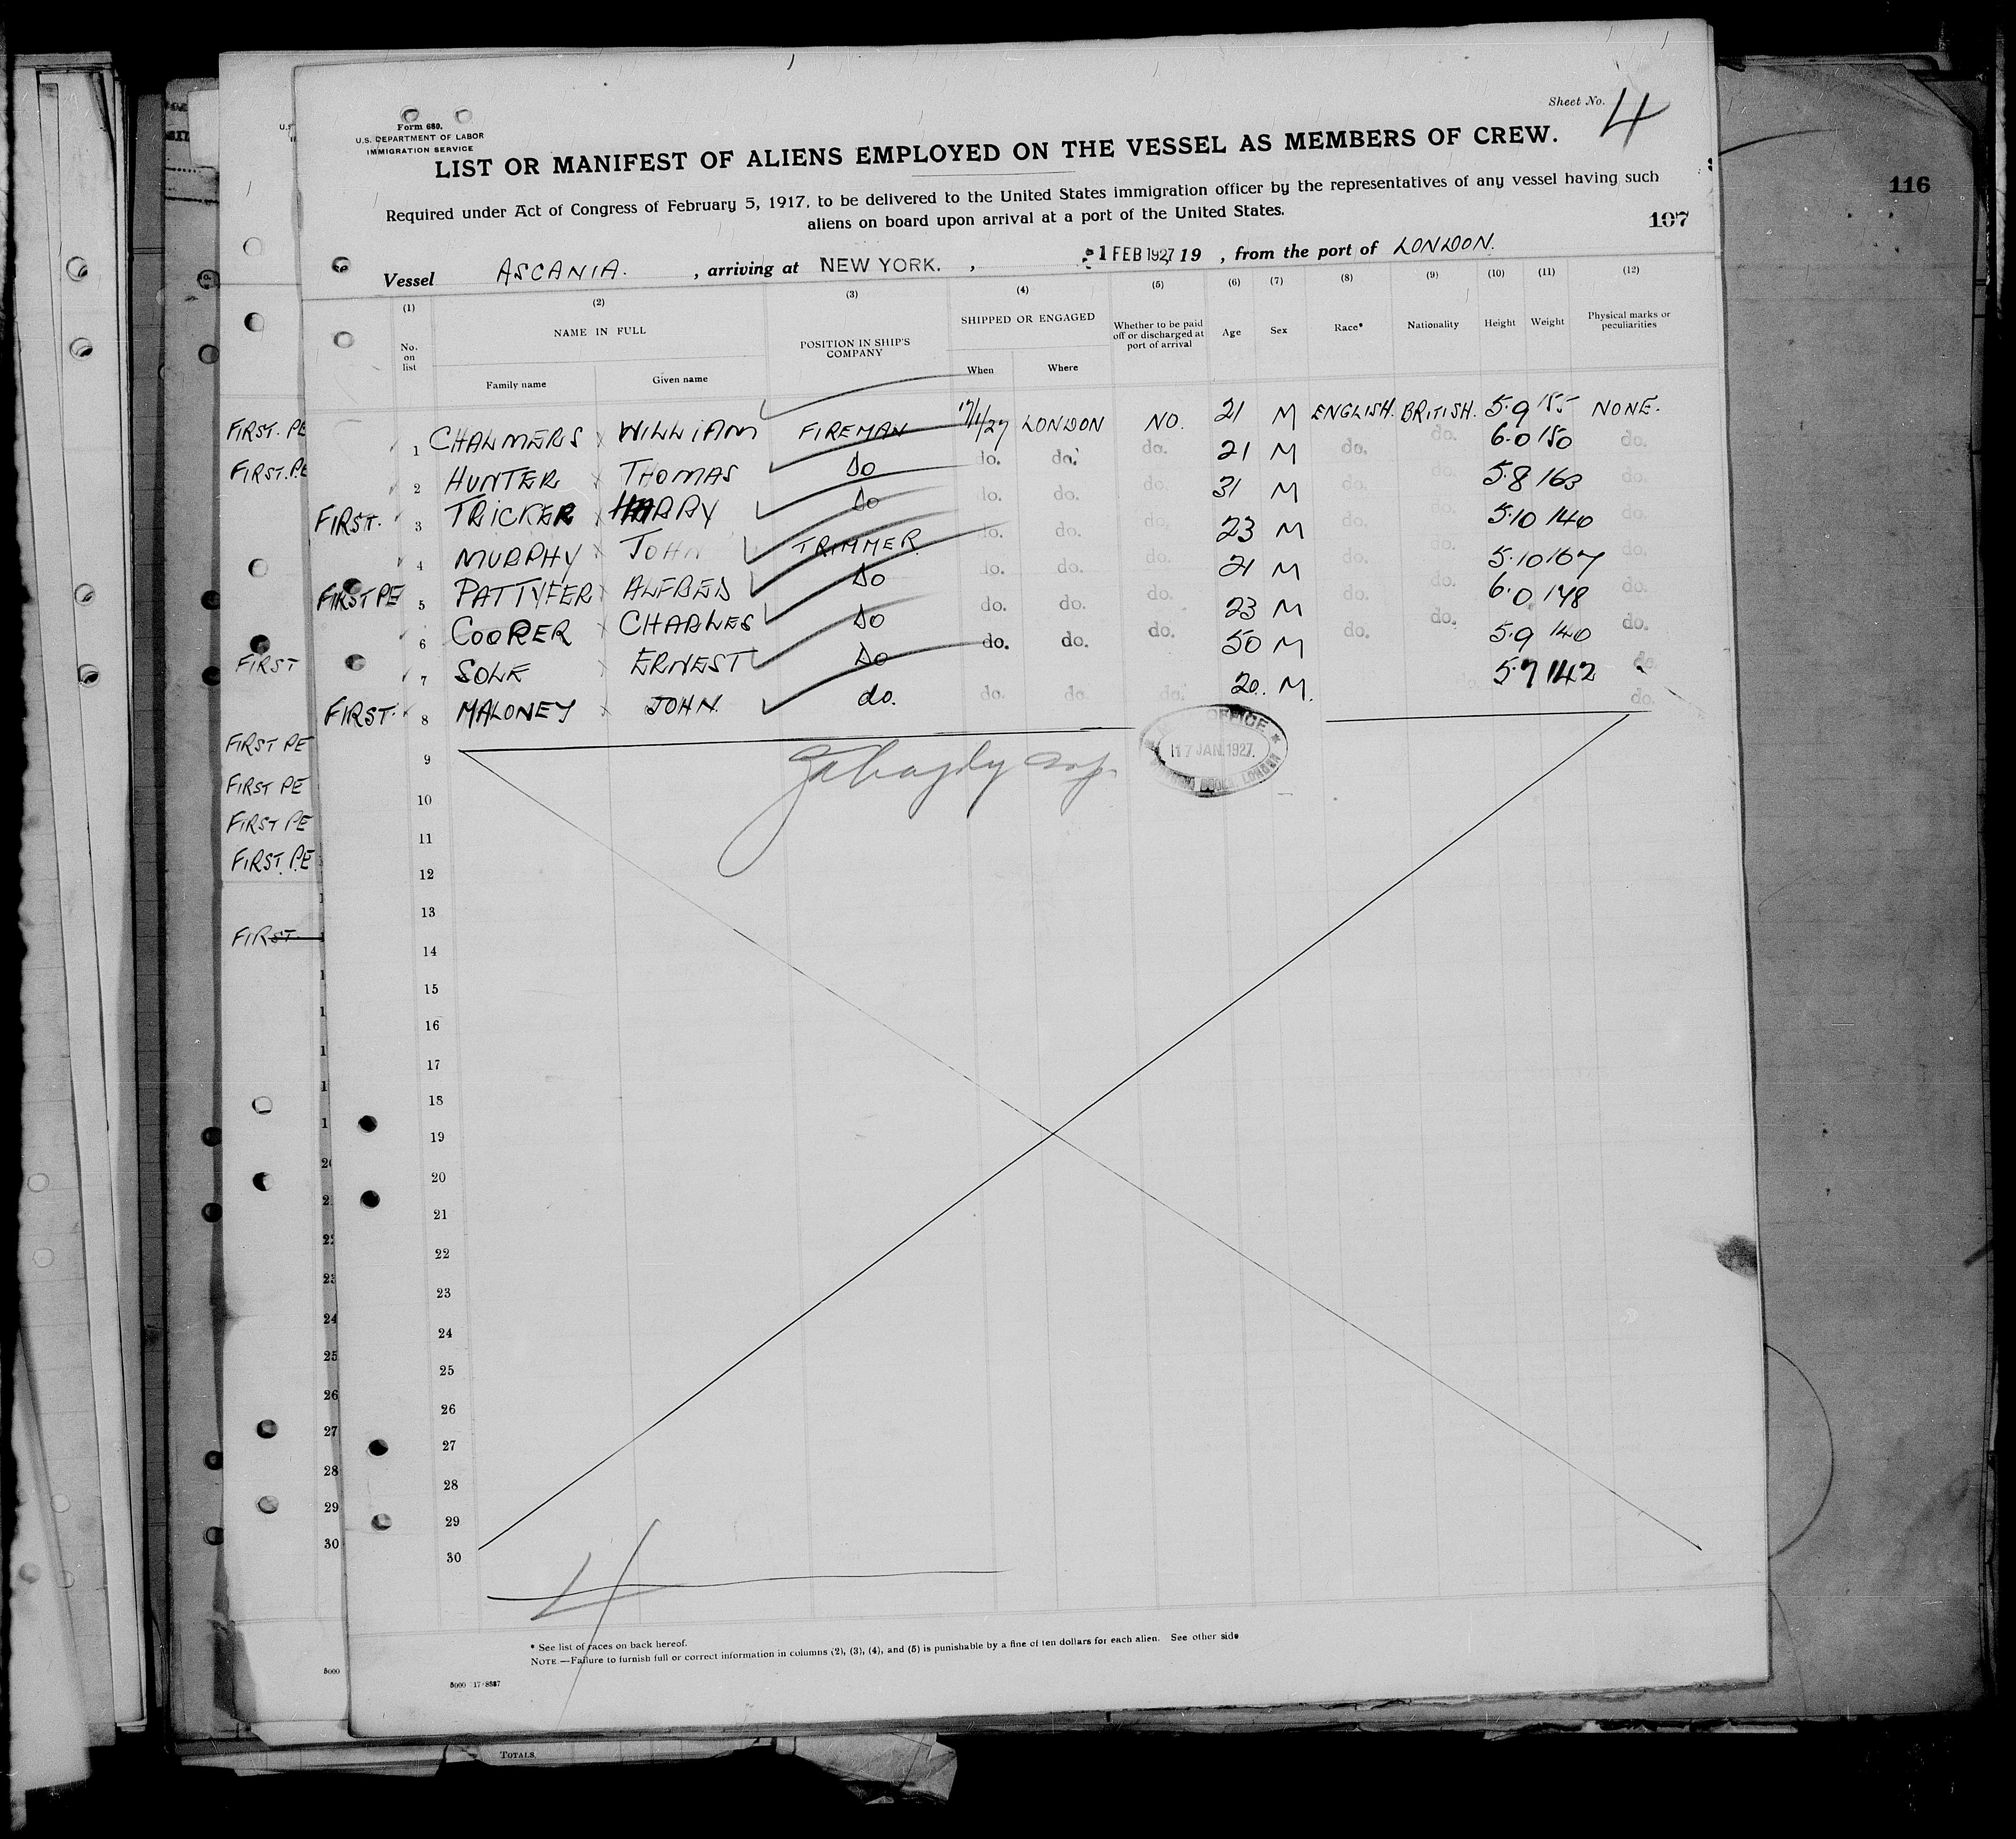 Sheet No. 4
Form 680.
U.S. DEPARTMENT OF LABOR
IMMIGRATION SERVICE
LIST OR MANIFEST OF ALIENS EMPLOYED ON THE VESSEL AS MEMBERS OF CREW.
Required under Act of Congress of February 5, 1917, to be delivered to the United States immigration officer by the representatives of any vessel having such
aliens on board upon arrival at a port of the United States.
116
107
Vessel ASCANIA. , arriving at NEW YORK. , 1 FEB 1927 19 , from the port of LONDON.
(1) (2) (3) (4) (5) (6) (7) (8) (9) (10) (11) (12)
No. on list NAME IN FULL POSITION IN SHIP'S COMPANY SHIPPED OR ENGAGED Whether to be paid off or discharged at port of arrival Age Sex Race* Nationality Height Weight Physical marks or peculiarities
Family name Given name When Where
FIRST. PE 1 CHALMERS x WILLIAM FIREMAN 17/1/27 LONDON NO. 21 M ENGLISH. BRITISH. 5.9 155 NONE.
FIRST. P.E 2 HUNTER x THOMAS DO do. do. do. 21 M do. do. 6.0 150 do.
FIRST. 3 TRICKER x HARRY DO do. do. do. 31 M do. do. 5.8 163 do.
4 MURPHY x JOHN TRIMMER do. do. do. 23 M do. do. 5.10 140 do.
FIRST PE 5 PATTYFER x ALFRED DO do. do. do. 21 M do. do. 5.10 167 do.
6 COOPER x CHARLES DO do. do. do. 23 M do. do. 6.0 148 do.
FIRST 7 SOLE x ERNEST DO do. do. do. 50 M do. do. 5.9 140 do.
FIRST. 8 MALONEY x JOHN. do. do. do. do. 20. M. do. 5.7 142 do.
FIRST PE 9
OFFICE
17 JAN. 1927.
LONDON
FIRST PE 10
FIRST PE 11
FIRST. P.E 12
13
FIRST. 14
15
16
17
18
19
20
21
22
23
24
25
26
27
28
29
30
22
24
25
26
27
28
29
30
4
* See list of races on back hereof.
NOTE.—Failure to furnish full or correct information in columns (2), (3), (4), and (5) is punishable by a fine of ten dollars for each alien. See other side
5000
TOTALS.